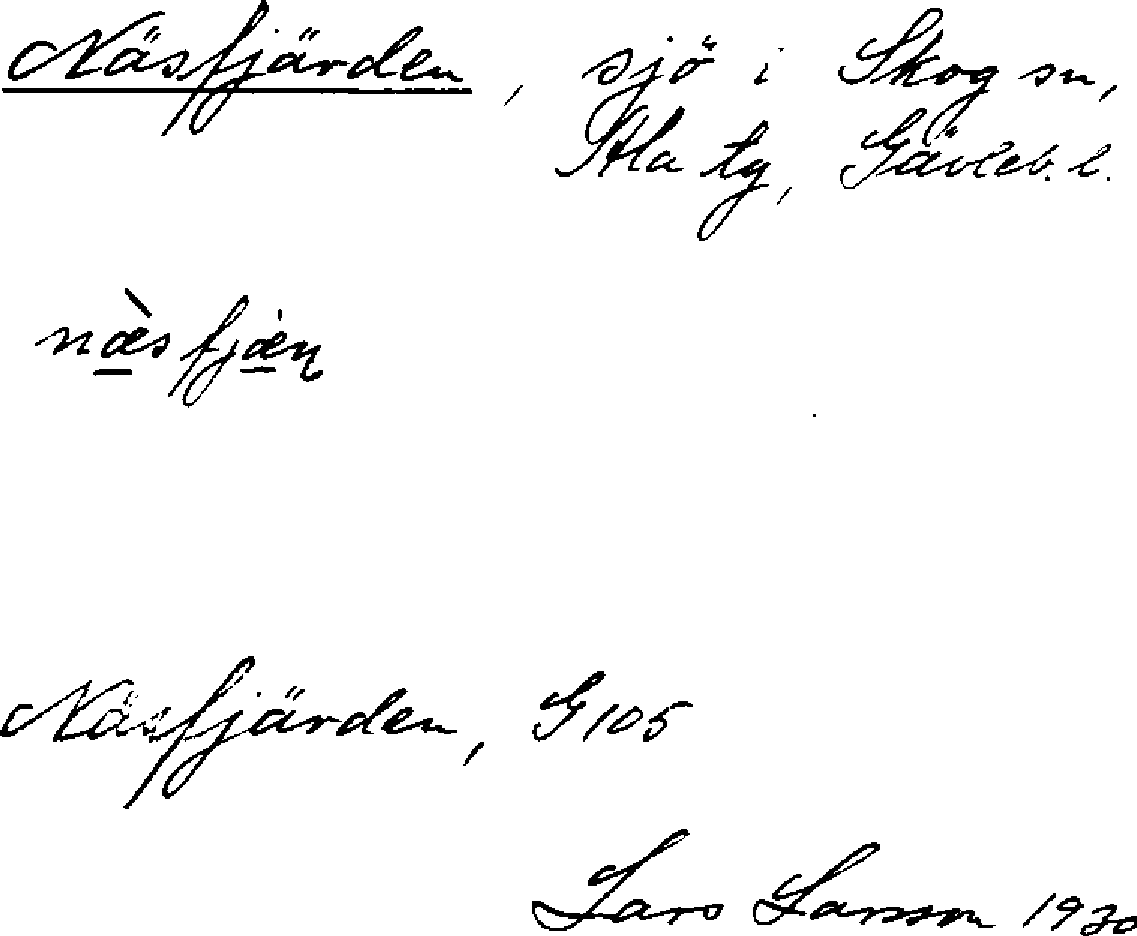 Näsfjärden, sjö i Skog sn,
Ala tg, Gävleb. l.
næ̀sfjæ̇ɳ
Näsfjärden, G105
Lars Larsson 1930